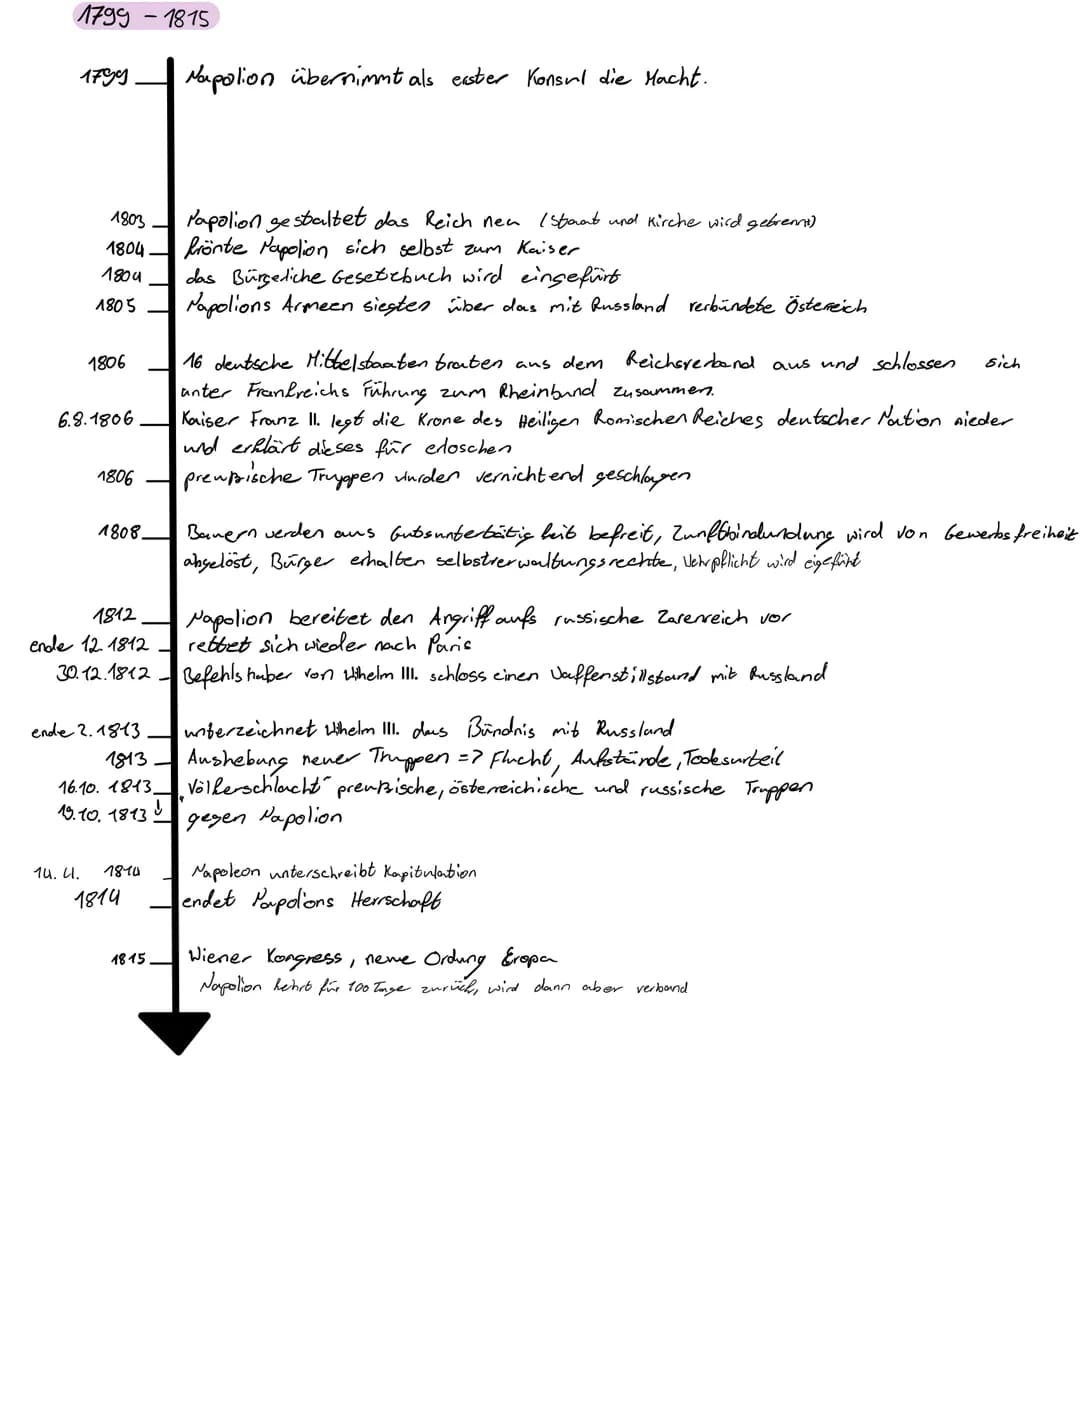 1799 - 1815
1799 Napolion übernimmt als erster Konsul die Macht.
1803 Napolion gestaltet das Reich neu (Staat und Kirche wird getrennt)
1804 krönte Napolion sich selbst zum Kaiser
1804 das Bürgerliche Gesetzbuch wird eingefürt
1805 Napolions Armeen siegten über das mit Russland verbündete Österreich
1806 16 deutsche Mittelstaaten traten aus dem Reichsverband aus und schlossen sich
unter Frankreichs Führung zum Rheinbund zusammen.
6.8.1806 Kaiser Franz II. legt die Krone des Heiligen Römischen Reiches deutscher Nation nieder
und erklärt dieses für erloschen
1806 preußische Truppen wurden vernichtend geschlagen
1808 Bauern werden aus Gutsuntertätigkeit befreit, wird von Gewerbsfreiheit
abgelöst, Bürger erhalten selbstverwaltungsrechte, Wehrpflicht wird eigefürt
1812 Napolion bereitet den Angriff aufs russische Zarenreich vor
ende 12.1812 rettet sich wieder nach Paris
30.12.1812 Befehlshaber von Wilhelm III. schloss einen Waffenstillstand mit Russland
ende 2.1813 unterzeichnet Wilhelm III. das Bündnis mit Russland
1813 Aushebung neuer Truppen => Flucht, Aufstände, Todesurteil
16.10.1813 "Völkerschlacht" preußische, österreichische und russische Truppen
19.10.1813 ↓ gegen Napolion
14.4. 1814 Napoleon unterschreibt Kapitulation
1814 endet Napolions Herrschaft
1815 Wiener Kongress, neue Ordung Eropa
Napolion kehrt für 100 Tage zurück, wird dann aber verband